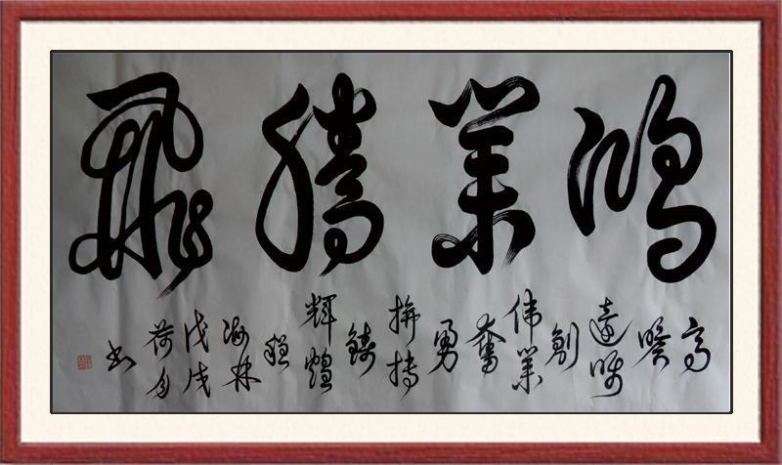 鴻業騰飛
高瞻遠瞩創伟業奮勇拚搏鑄輝煌
程海林戊戌荷月书